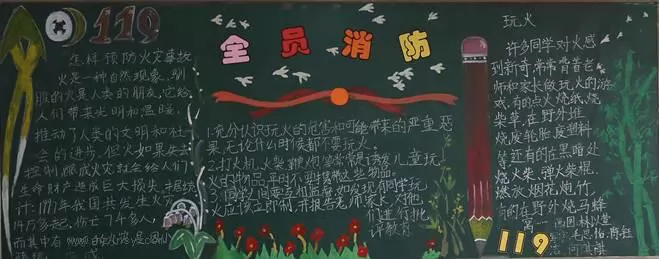 119
怎样预防火灾事故
火是一种自然现象,驯
服的火是人类的朋友,它给
人们带来光明和温暖,
推动了人类的文明和社
会的进步。但火如果失去
控制,酿成火灾就会给人们
生命财产造成巨大损失,
计:1997年我国共发生火灾
14万多起,伤亡7千多人,
而其中有
全员消防
1.充分认识玩火的危害和可能带来的严重恶
果,无论什么时候都不要玩火。
2.打火机,火柴,鞭炮等常常是诱发儿童玩
火的物品,平时不要携带这些物品。
3.同学间要互相监督,如发现有同学玩
火应该立即制止,并报告老师家长,对他
们进行批
评教育
玩火
许多同学对火感
到新奇,常常背着老
师和家长做玩火的游
戏,有的点火烧纸,烧
柴草,在野外堆
烧废轮胎废塑料
等,还有的在黑暗处
烧火柴,弹火柴棍,
燃放烟花炮竹,
有的在野外烧马蜂
窝
119